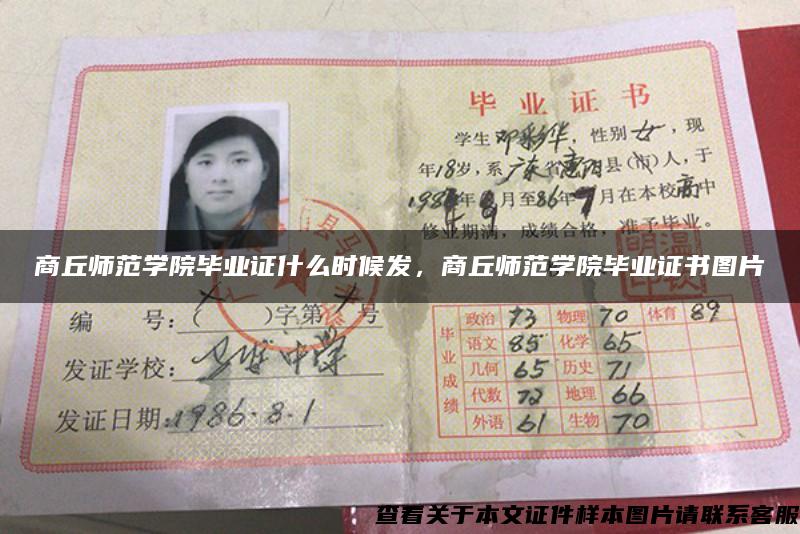 毕业证书
学生邓彩华,性别女,现
年18岁,系广东省惠阳县(市)人,于
月至86年7月在本校高中
修业期满,成绩合格,准予毕业。
商丘师范学院毕业证什么时候发,商丘师范学院毕业证书图片
编 号:( )字第 号
发证学校: 中学
发证日期:1986.8.1
毕业成绩
政治 73 物理 70 体育 89
语文 85 化学 65
几何 65 历史 71
代数 72 地理 66
外语 61 生物 70
查看关于本文证件样本图片请联系客服